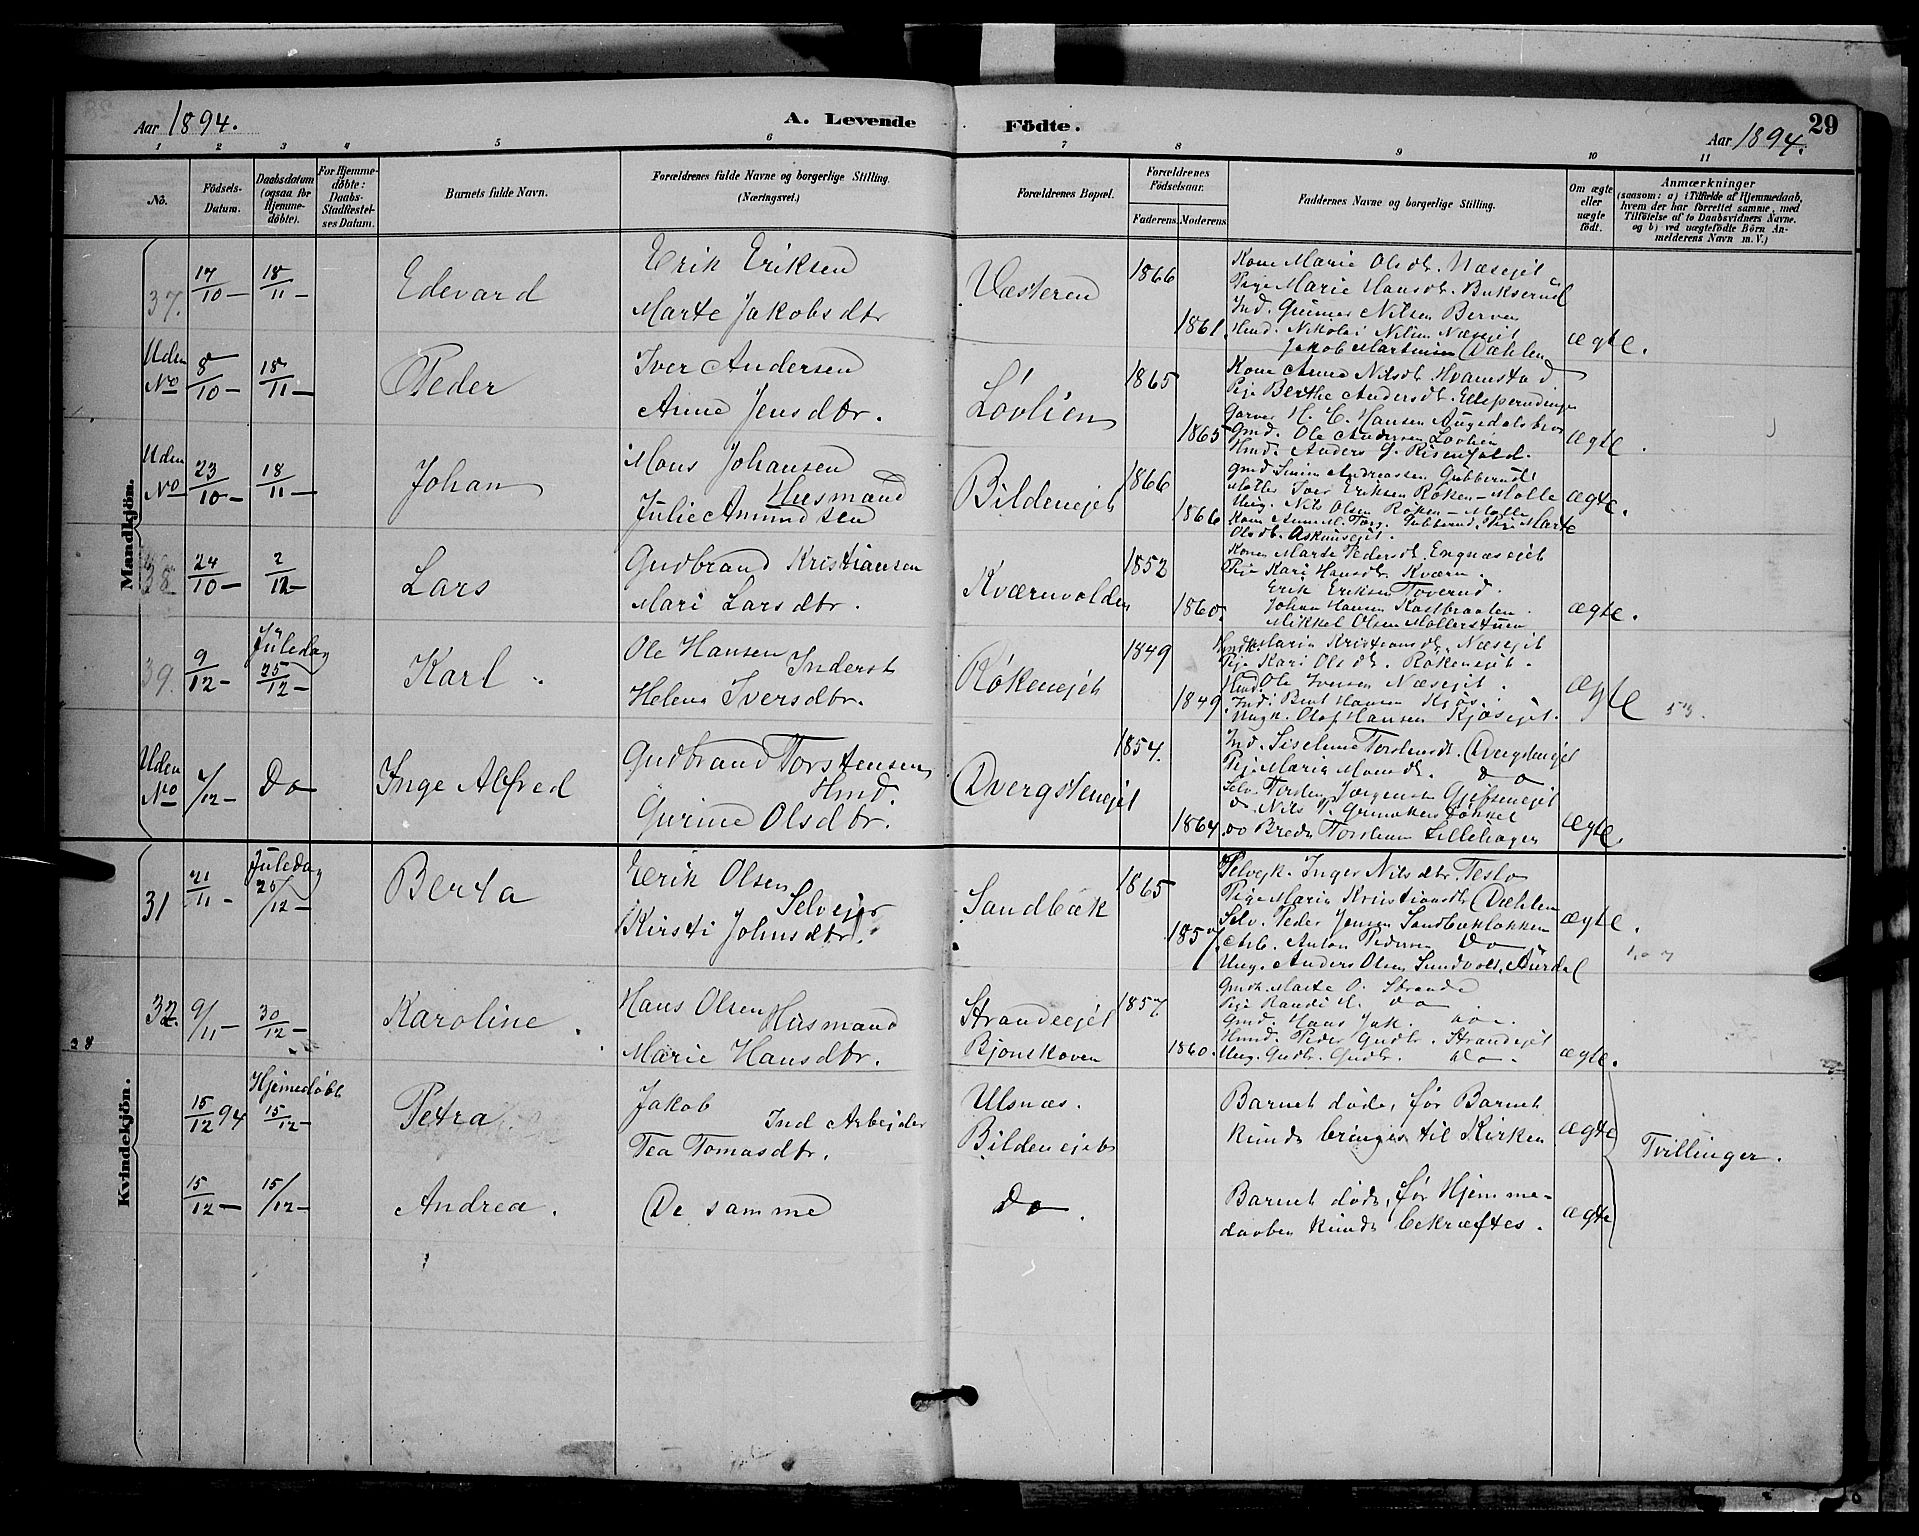 Aar 1894. A. Levende Födte. Aar 1894. 29
1 2 3 4 5 6 7 8 9 10 11
No.
Födsels-Datum.
Daabsdatum (ogsaa for Hjemme-döbte).
For Hjemme-döbte: Daabs-Stadfæstelses Datum.
Barnets fulde Navn.
Forældrenes fulde Navne og borgerlige Stilling. (Næringsvei.)
Forældrenes Bopæl.
Forældrenes Födselsaar.
Faderens. Moderens.
Faddernes Navne og borgerlige Stilling.
Om ægte eller uægte födt.
Anmærkninger
(saasom: a) i Tilfælde af Hjemmedaab, hvem der har forrettet samme, med Tilföielse af to Daabsvidners Navne. og b) ved uægtefödte Börn Anmelderens Navn m. V.)
Mandkjön.
37. 17/10 18/11 Edevard
Erik Eriksen
Marte Jakobsdtr
Væsteren 1866 1861.
Kone Marie Olsdt. Næsejet
Pige Marie Hansdt. Bukserud
Ind. Gunner Nilsen Berven
Hmd. Nikolai Nilsen Næsejet
Jakob Martinsen Dæhlen
ægte.
Uden No 8/10 18/11 Peder
Iver Andersen
Anne Jensdtr.
Lövlien 1865 1865
Kone Anne Nilsdt. Hvamstad
Pige Berthe Andersdt.
Garver H. C. Hansen Augedalsbro
Gmd. Ole Andersen Lovlien
Hmd. Anders G.
ægte.
Uden No 23/10 18/11 Johan
Mons Johansen
Husmand
Julie Amundsen
Bildenejet 1866 1866
Gmd Simen Andreassen Gubberud
Møller Iver Eriksen Røken-Mølle
Ung. Nils Olsen Røken-Mølle
Gubberud, Pige Marte
Olsdt. Askimsejet.
ægte.
38 24/10 2/12 Lars
Gudbrand Kristiansen
Mari Larsdtr.
Kværnvolden 1852 1860.
Kone Marte Pedersdt. Engnæsejet
Pige Kari Hansdt. Kværn.
Erik Eriksen Toverud.
Johan Hansen Kastbraaten.
Mikkel Olsen Møllerstuen
ægte.
39. 9/12 Juledag 25/12 Karl
Ole Hansen
Inderst
Helene Iversdtr.
Røkenejet 1849 1849
Maria Kristiansdt. Næsejet
Pige Kari Olsdt. Røkenejet.
Hmd. Ole Iversen Næsejet.
Ind. Bent Hansen Kjøs.
Ungk. Olaf Hansen Kjøsejet.
ægte 53.
Uden No /12 Do Inge Alfred
Gudbrand Torstensen
Hmd.
Gurine Olsdtr.
Dvergstenejet 1854. 1864.
Ind. Siselene Torstensdt. Dvergstenejet
Pige Maria Monsdt. do
Selv. Torsten Jørgensen
do Nils P.
do Brede Torstensen Lillehagen
ægte.
Kvindekjön.
31 21/11 Juledag 25/12 Berta
Erik Olsen
Selvejer
Kirsti Johnsdtr.
Sandbæk 1865 1857
Selvejk. Inger Nilsdtr. Teslo
Pige Maria Kristiansdt. Dæhlen
Selv. Peder Jensen Sandbækløkken
Arb. Anton Pedersen Do
Ung. Anders Olsen Sundvold, Aurdal
ægte.
32. 9/11 30/12 Karoline.
Hans Olsen
Husmand
Marie Hansdtr.
Strandeejet
Bjonskoven 1857 1860.
Gmdk. Marte O. Strande
Pige Randi H. do
Gmd. Hans Jak. do.
Hmd. Peder Gudbr. Strandejet
Ung. Gudbr. Gudbr. do.
ægte.
38
15/12 94 Hjemedøbt 15/12 Petra.
Jakob
Ind Arbejder
Tea Tomasdtr.
Ulsnæs.
Bildenejet
Barnet døde, før Barnet
kunde bringes til Kirken
ægte
Tvillinger.
15/12 15/12 Andrea.
De samme
Do.
Barnet døde, før Hjemme-
daaben kunde bekræftes.
ægte